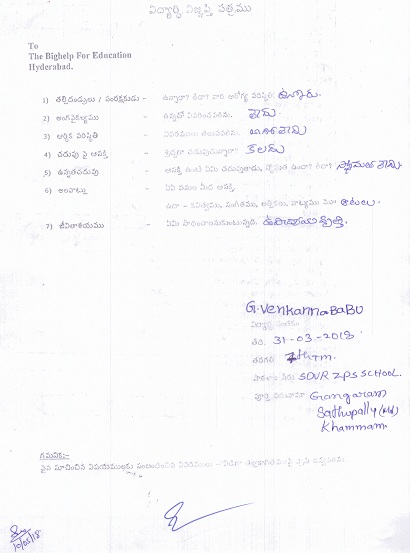 విద్యార్థి విజ్ఞప్తి పత్రము
To
The Bighelp For Education
Hyderabad.
1) తల్లిదండ్రులు / సంరక్షకుడు - ఉన్నారా? లేరా? వారి ఆరోగ్య పరిస్థితి. ఉన్నారు.
2) అంగవైకల్యము - ఉన్నచో వివరించవలెను.
3) ఆర్థిక పరిస్థితి - వివరములు తెలుపవలెను.
4) చదువు పై ఆసక్తి - శ్రద్ధగా చదువుచున్నారా? కలదు
5) ఉన్నతచదువు - ఆసక్తి ఉంటే ఏమి చదువుతాడు, స్తోమత ఉందా? లేదా?
6) అలవాట్లు - ఏఏ పనుల మీద ఆసక్తి.
ఉదా - కవిత్వము, సంగీతము, అల్లికలు, నాట్యము మొ॥ ఆటలు.
7) జీవితాశయము - ఏమి సాధించాలనుకుంటున్నావు.
G. Venkanna BaBU
విద్యార్థి సంతకం
తేది. 31-03-2018
తరగతి 7thTM.
పాఠశాల పేరు SDVR ZPS SCHOOL.
పూర్తి చిరునామా Gangaram
Sathupally (Md)
Khammam.
గమనిక:-
పైన సూచించిన విషయములకు సంబంధించిన వివరములు
10/05/18